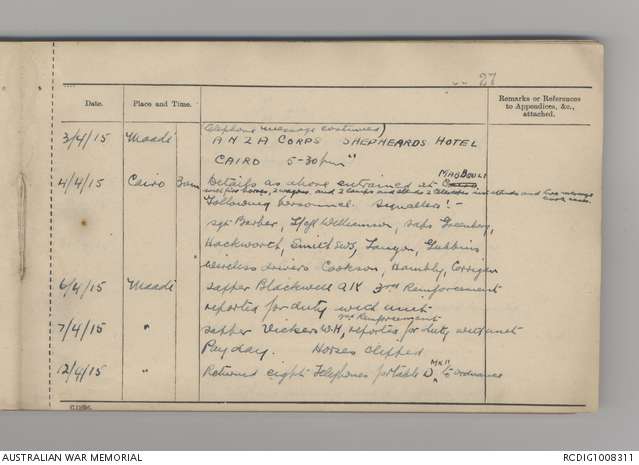 27
Date.
Place and Time.
Remarks or References
to Appendices, &c.,
attached.
(Telephone message continued)
3/4/15 Maadi A N Z A CORPS SHEPHEARDS HOTEL
CAIRO 5-30 pm"
MAHDOULI
4/4/15 Cairo 3am Details as above entrained at Cairo
with five horses, 2 wagons, and 2 and
Following personnel. Signallers:-
Sgt Barber, L/cpl Williamson, Saps Greenberg,
Hackworth, Smith SWS, Lanyon, Gubbins
Wireless drivers Cookson, Hambly, Corrigan
6/4/15 Maadi Sapper Blackwell A.K 3rd Reinforcement
reported for duty with unit
3rd Reinforcement
7/4/15 " Sapper Vickers W.H, reported for duty with unit
Pay day. Horses clipped
12/4/15 " Returned eight Telephones portable D, Mk II to Ordnance
AUSTRALIAN WAR MEMORIAL
RCDIG1008311